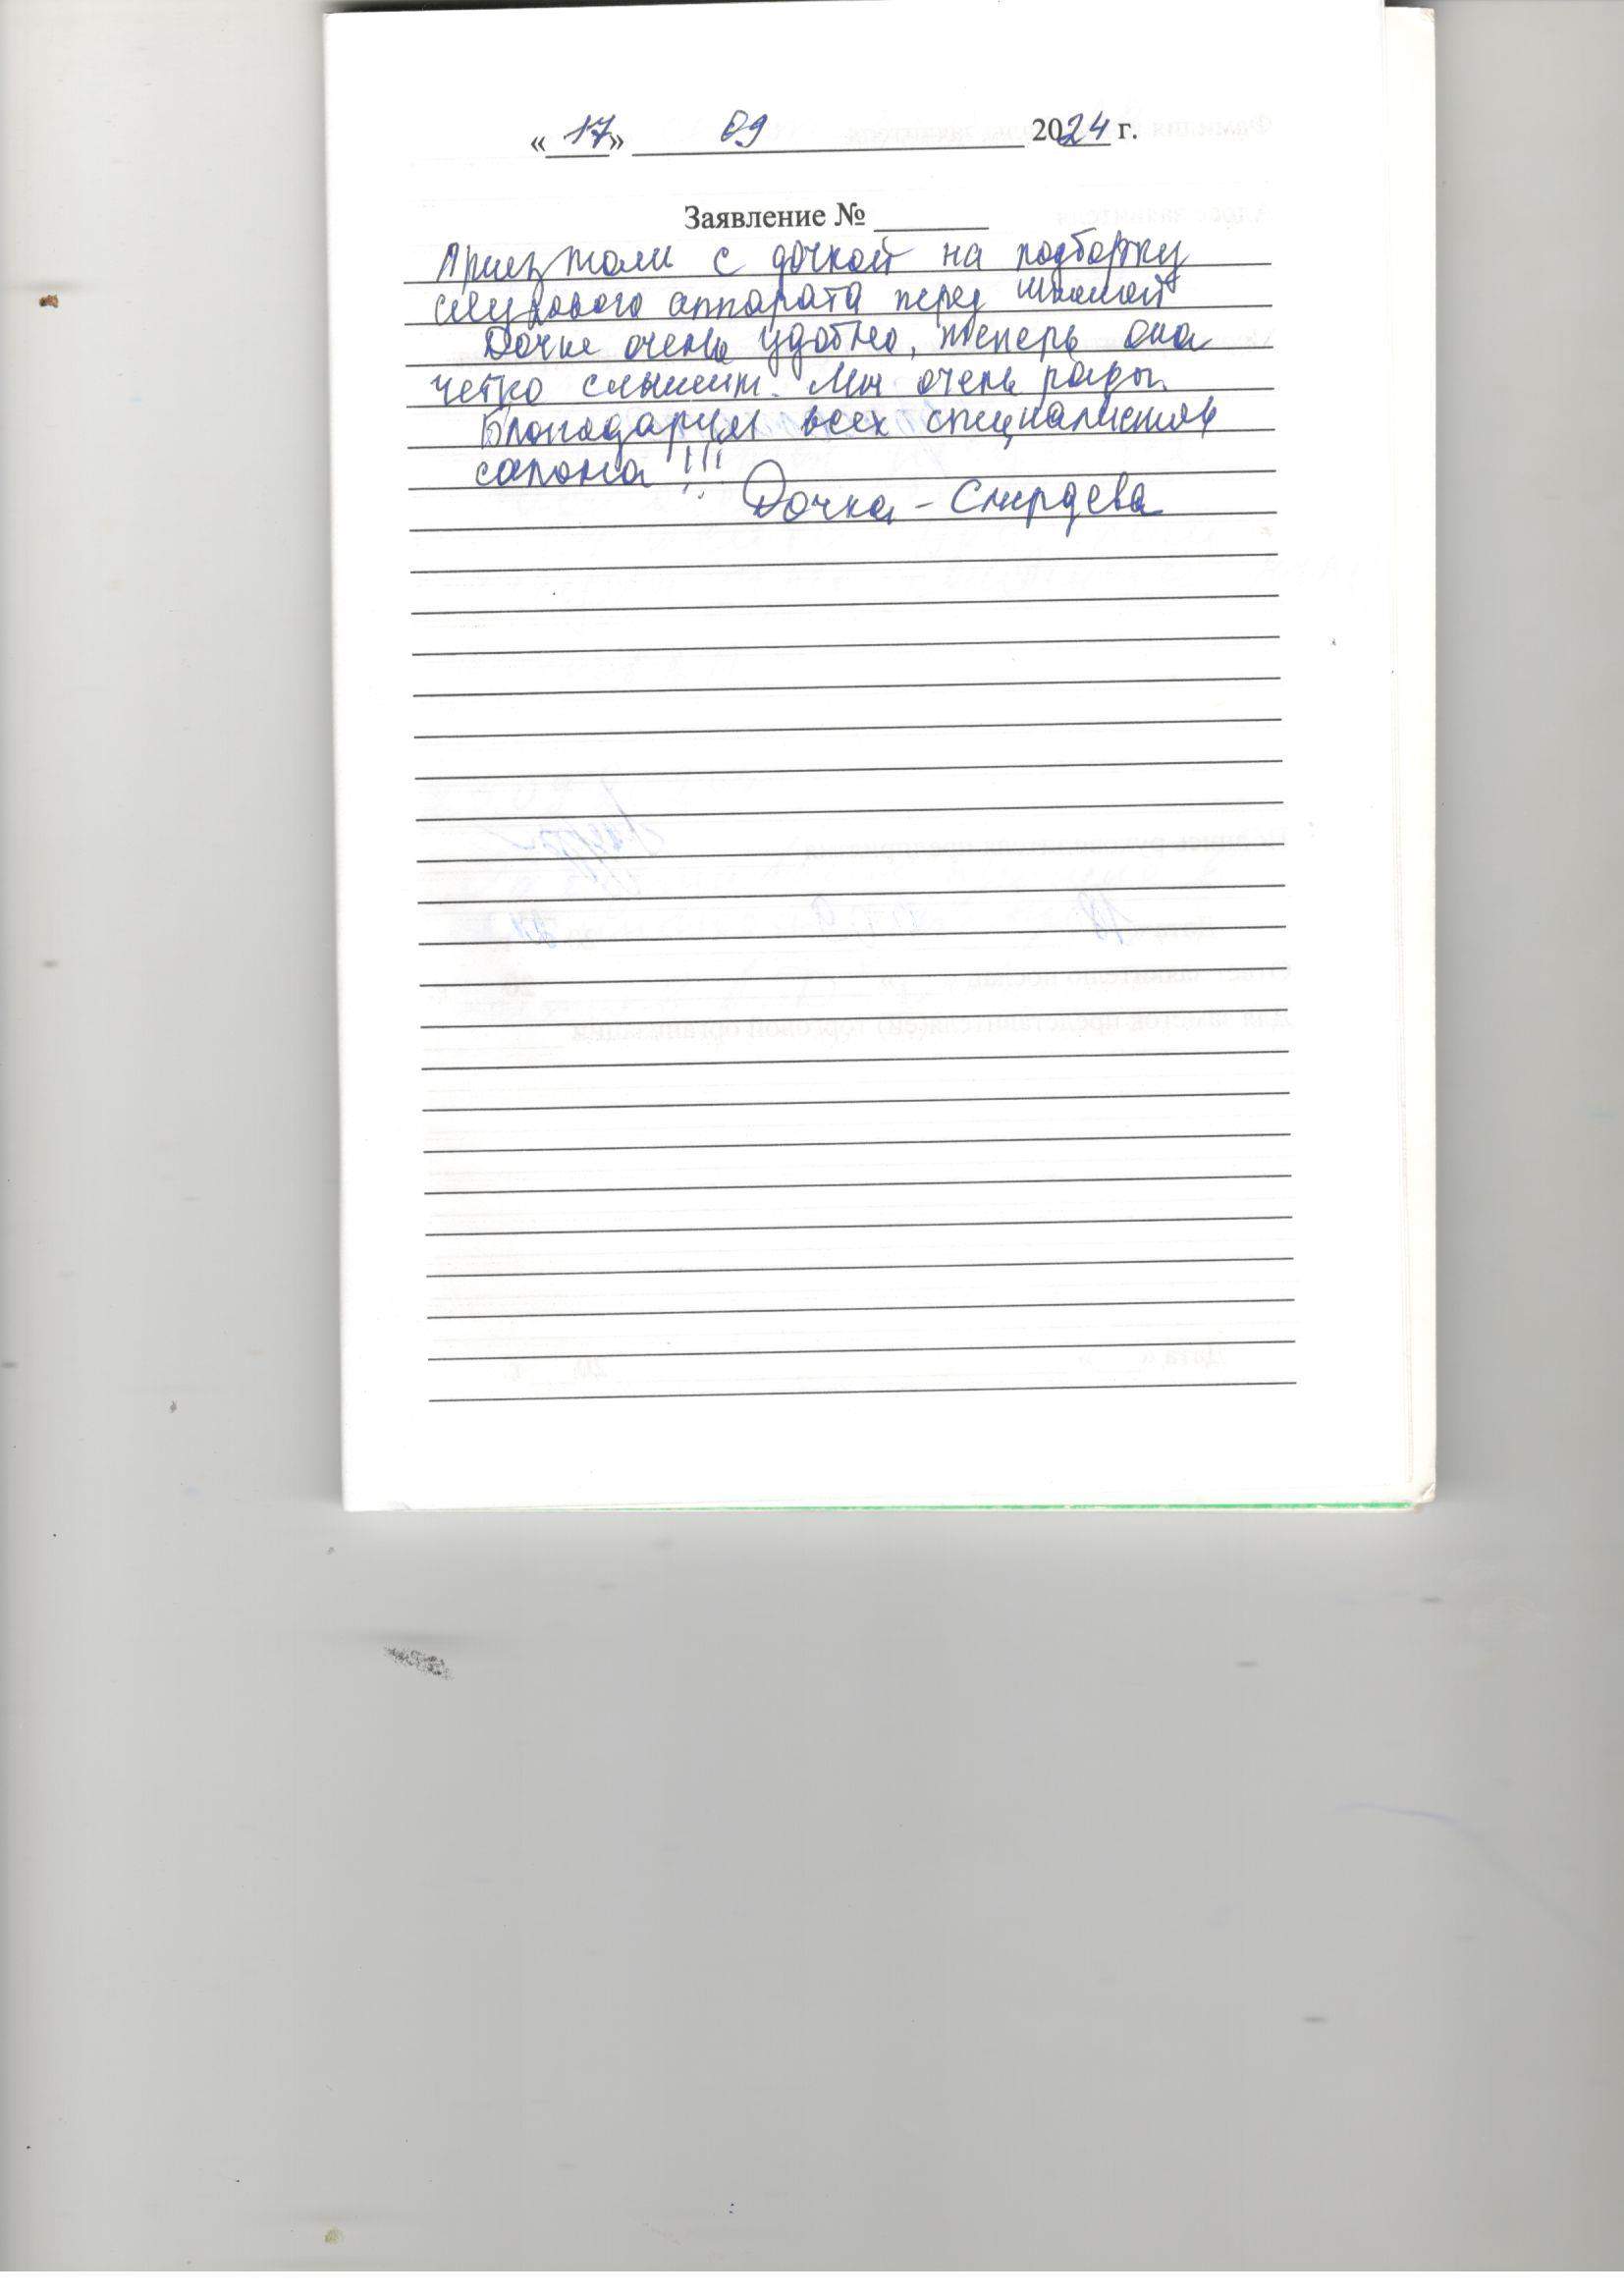 «17» 09 2024 г.
Заявление №
Приезжали с дочкой на подборку
слухового аппарата перед школой
Дочке очень удобно, теперь она
четко слышит. Мы очень рады.
Благодарим всех специалистов
салона!!!
Дочка -